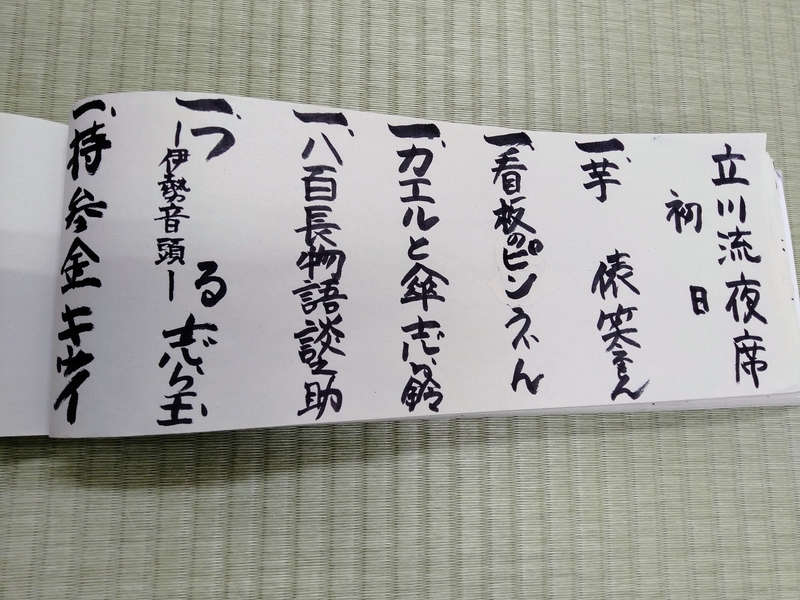 立川流夜席
初日
一、芋俵 笑えもん
一、看板のピン うぃん
一、カエルと傘 志ら鈴
一、八百長物語 談之助
一、つる 志ら玉
ー伊勢音頭ー
一、持参金 キウイ